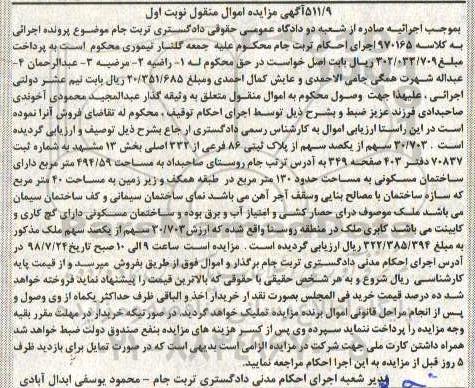 ۵۱۱/۹آگهی مزایده اموال منقول نوبت اول
بموجب اجرائیه صادره از شعبه دو دادگاه عمومی حقوقی دادگستری تربت جام موضوع پرونده اجرائی
به کلاسه ۹۷۰۱۶۵ اجرای احکام تربت جام محکوم علیه جمعه گلنثار تیموری محکوم است به پرداخت
مبلغ۳۰۲/۰۳۳/۷۰۹ ریال بابت اصل خواست در حق محکوم له ۱- راضیه ۳- مرضیه ۳- عبدالرحمان ۴-
عبداله شهرت همگی جامی الاحمدی و عایش کمال احمدی ومبلغ ۲۰/۳۵۱/۶۸۵ ریال بابت نیم عشر دولتی
اجرائی . علیهذا جهت وصول محکوم به اموال منقول متعلق به وثیقه گذار عبدالمجید محمودی آخوندی
صاحبدادی فرزند عزیز ضبط و بشرح ذیل توسط اجرای احکام توقیف . محکوم له تقاضای فروش آنرا نموده
است در این راستا ارزیابی اموال به کارشناس رسمی دادگستری ارجاع بشرح ذیل توصیف و ارزیابی گردیده
است . ۳۰/۷۰۳ سهم از یکصد سهم از پلاک ثبتی ۸۶ فرعی از ۳۳۶ اصلی بخش ۱۳ مشهد به شماره ثبت
۷۰۸۳۷ دفتر ۴۰۳ صفحه ۳۴۹ به آدرس تربت جام روستای صاحبداد به مساحت ۴۹۴/۵۹ متر مربع دارای
ساختمان مسکونی به مساحت حدود ۱۳۰ متر مربع در طبقه همکف و زیر زمین به مساحت ۴۰ متر مربع
که سازه ساختمان با مصالح بنایی وسقف آجر آهن می باشد نمای ساختمان سیمانی و کف ساختمان سیمان
می باشد ملک موصوف درای حصار کشی و امتیاز آب و برق بوده و ساختمان مسکونی دارای گچ کاری و
کابینت می باشد گابری ملک در منطقه روستا واقع شده که ارزش ۳۰/۷۰۳سهم از یکصد سهم ملک مذکور
به مبلغ ۳۲۲/۳۸۵/۳۹۴ ریال ارزیابی گردیده است . مزایده است ساعت ۹ الی ۱۰ صبح تاریخ ۹۸/۷/۲۴ در
آدرس اجرای احکام مدنی دادگستری تربت جام برگذار و اموال فوق از طریق بفروش میرسد و از قیمت پایه
کارشناسی ریال شروع و به هر شخص حقیقی یا حقوقی که بالاترین قیمت را پیشنهاد نماید فروخته خواهد
شد ده درصد قیمت خرید فی المجلس بصورت نقد از خریدار اخذ و الباقی ظرف حداکثر یکماه از وی وصول و
پس از انجام مراحل قانونی اموال برنده مزایده تملیک خواهد گردید. درصورتیکه خریدار در مهلت مقرر بقیه
وجه مزایده را پرداخت ننماید سپرده وی پس از کسر هزینه های مزایده بنفع صندوق دولت ضبط خواهد شد
همراه داشتن کارت ملی جهت شرکت در مزایده الزامی است بدیهی است که در صورت تمایل برای بازدید ظرف
۵ روز قبل از مزایده به این اجرا احکام مراجعه نمایید.
مدیر شعبه اجرای احکام مدنی دادگستری تربت جام - محمود یوسفی ابدال آبادی